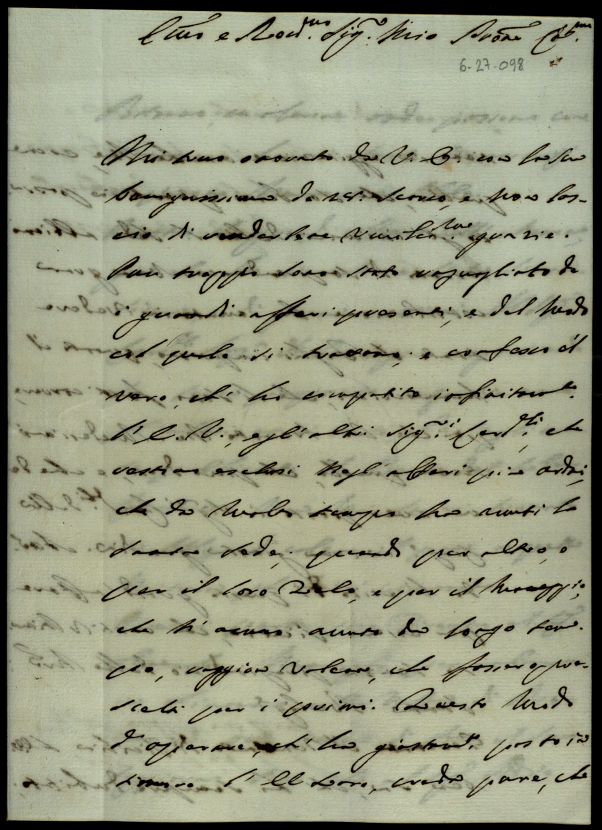 Em̃o e Rev.mo Sig.r Mio Pron̄e Col.mo
6-27-098
Mi trovo onorato da V. E. con la sua
benignissima de 25. scorso, e non las-
cio di renderlene umiliss.me grazie.
Pur troppo sono stato ragguagliato de
i grandi affari presenti, e del modo
col quale si trattano; e confesso il
vero, ch'ho compatito infinitam.te
l'E. V., e gli altri Sig.ri Card.li, che
restino esclusi negli affari più ardui,
che da molto tempo ha avuti la
Santa Sede; quando per altro, o
per il loro zelo, e per il maneggio,
che ti anno avuto da longo tem-
po, voggion volean, che fossero pre-
scelti per i primi. Questo modo
d'operare, ch'ha giustam.te posto in
timore l'EE. loro, credo pure, che